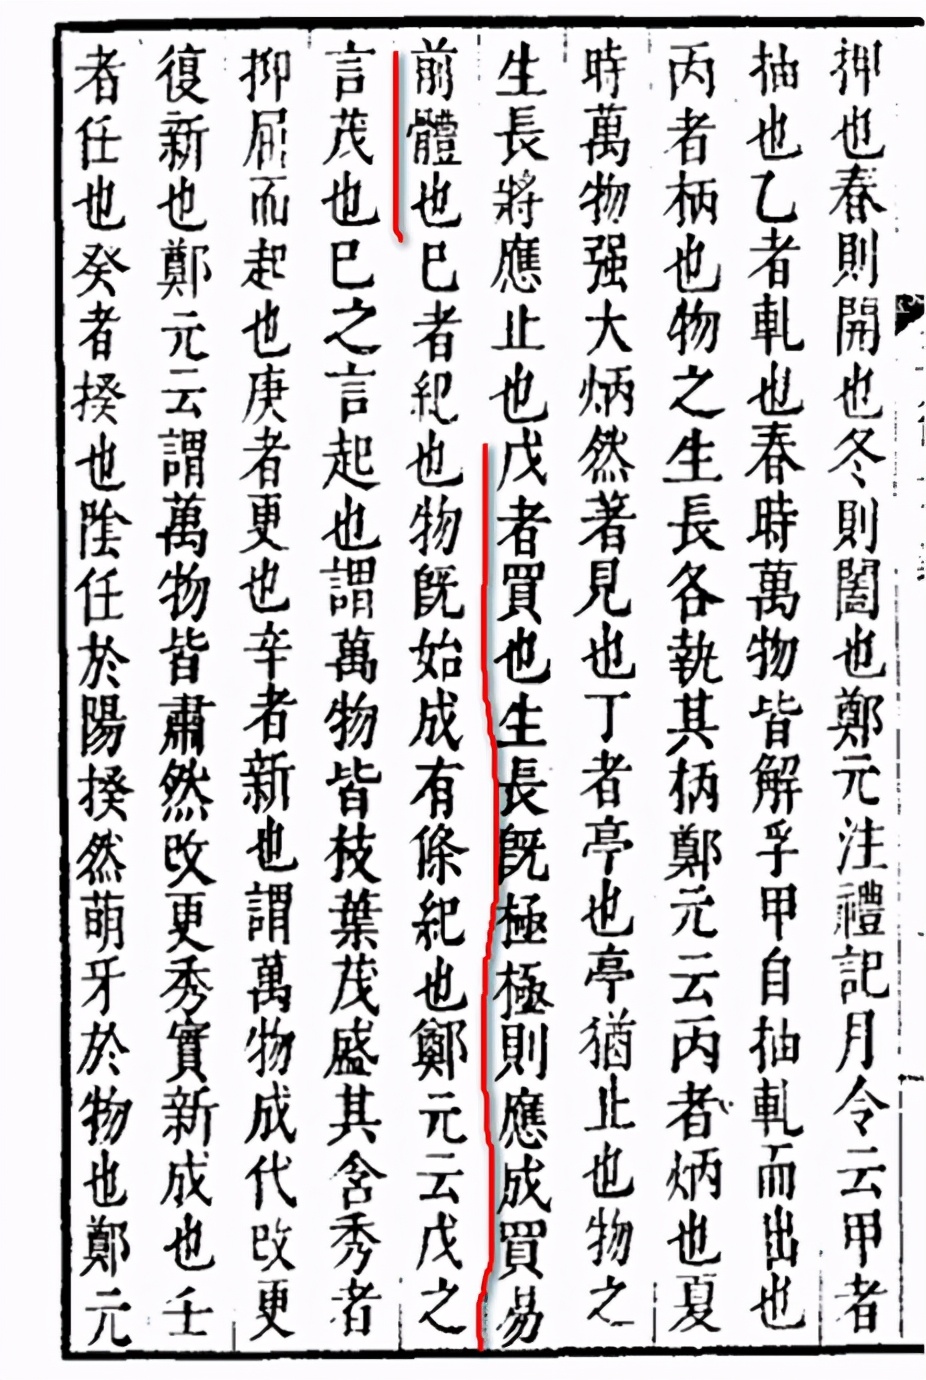 押也春則開也冬則闔也鄭元注禮記月令云甲者
抽也乙者軋也春時萬物皆解孚甲自抽軋而出也
丙者柄也物之生長各執其柄鄭元云丙者炳也夏
時萬物强大炳然著見也丁者亭也亭猶止也物之
生長將應止也戊者買也生長旣極極則應成買易
前體也巳者紀也物旣始成有條紀也鄭元云戊之
言茂也巳之言起也謂萬物皆枝葉茂盛其含秀者
抑屈而起也庚者更也辛者新也謂萬物成代改更
復新也鄭元云謂萬物皆肅然改更秀實新成也壬
者任也癸者揆也陰任於陽揆然萌牙於物也鄭元